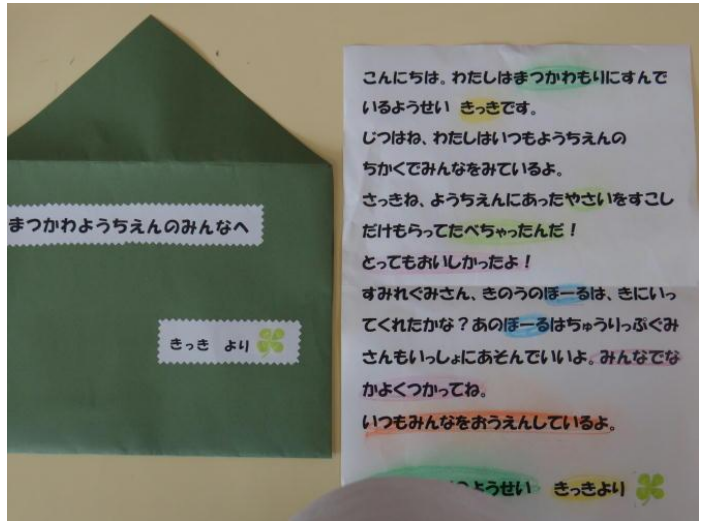 まつかわようちえんのみんなへ
きっき より
こんにちは。わたしはまつかわもりにすんで
いるようせい きっきです。
じつはね、わたしはいつもようちえんの
ちかくでみんなをみているよ。
さっきね、ようちえんにあったやさいをすこし
だけもらってたべちゃったんだ！
とってもおいしかったよ！
すみれぐみさん、きのうのぼーるは、きにいっ
てくれたかな？あのぼーるはちゅうりっぷぐみ
さんもいっしょにあそんでいいよ。みんなでな
かよくつかってね。
いつもみんなをおうえんしているよ。
のようせい きっきより